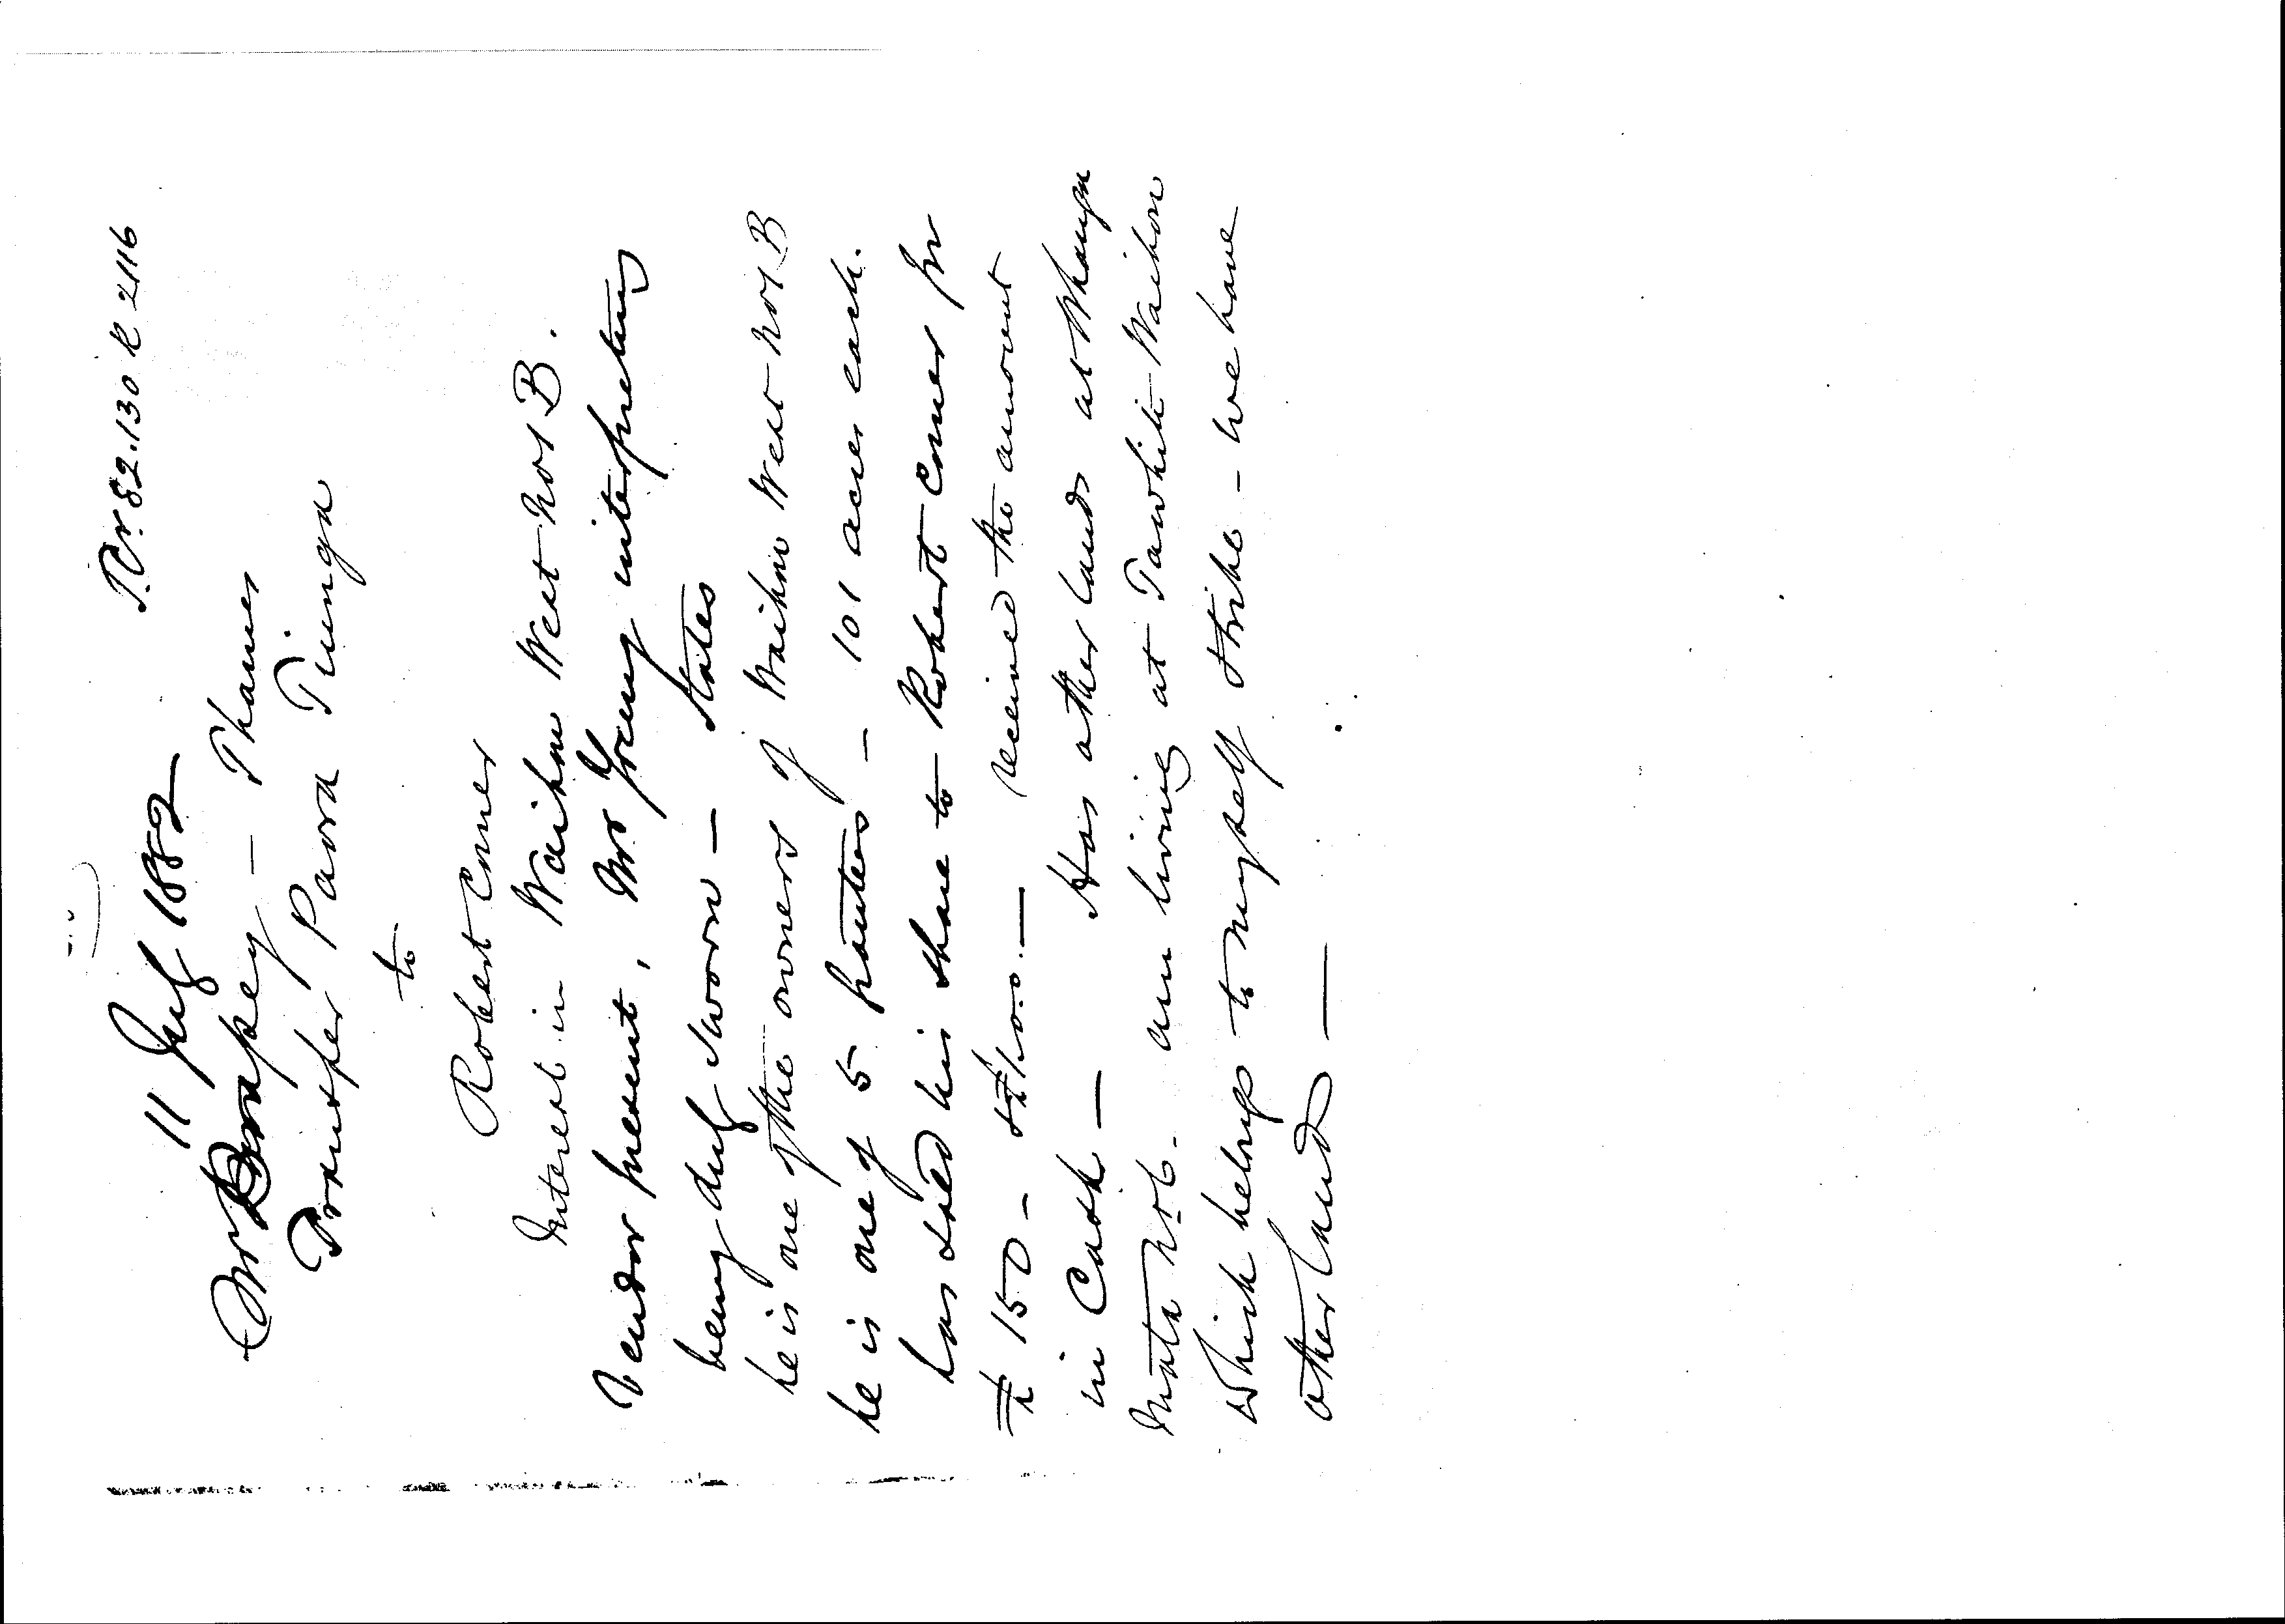 11 July 1882 T.Cr. 82.130 R 2116
Mr Brassey — Thames
Transfer Paora Tiunga
to
Robert Comer
Interest in Waihou West No 1 B.
Vendor present, Mr Young interpreting
being duly sworn — states
he is one of the owners of Waihou West No 1 B
he is one of 5 grantees — 101 acres each.
has sold his share to Robert Comer for
£ 150 - — received the amount
in Cash — Has other lands at Whanga
mata No 6 - am living at Tawhiti - Waihou
which belongs to myself & tribe - we have
other land —